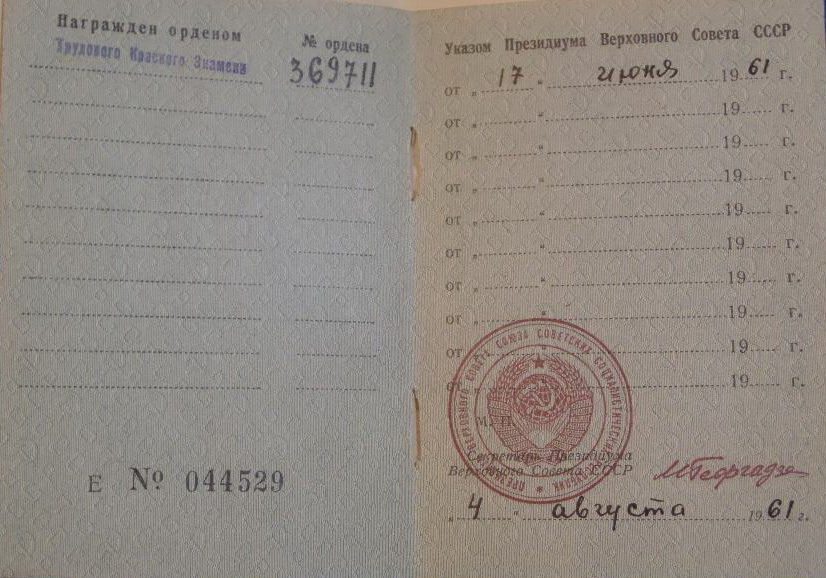 Награжден орденом
№ ордена
Трудового Красного Знамени
369711
Е № 044529
Указом Президиума Верховного Совета СССР
от „ 17 “ июня 1961 г.
от „ “ 19 г.
от „ “ 19 г.
от „ “ 19 г.
от „ “ 19 г.
от „ “ 19 г.
от „ “ 19 г.
от „ “ 19 г.
от „ “ 19 г.
от „ “ 19 г.
ВЕРХОВНОГО СОВЕТА СОЮЗА СОВЕТСКИХ СОЦИАЛИСТИЧЕСКИХ
М. П.
Секретарь Президиума
Верховного Совета СССР
МГеоргадзе
„ 4 “ августа 1961 г.